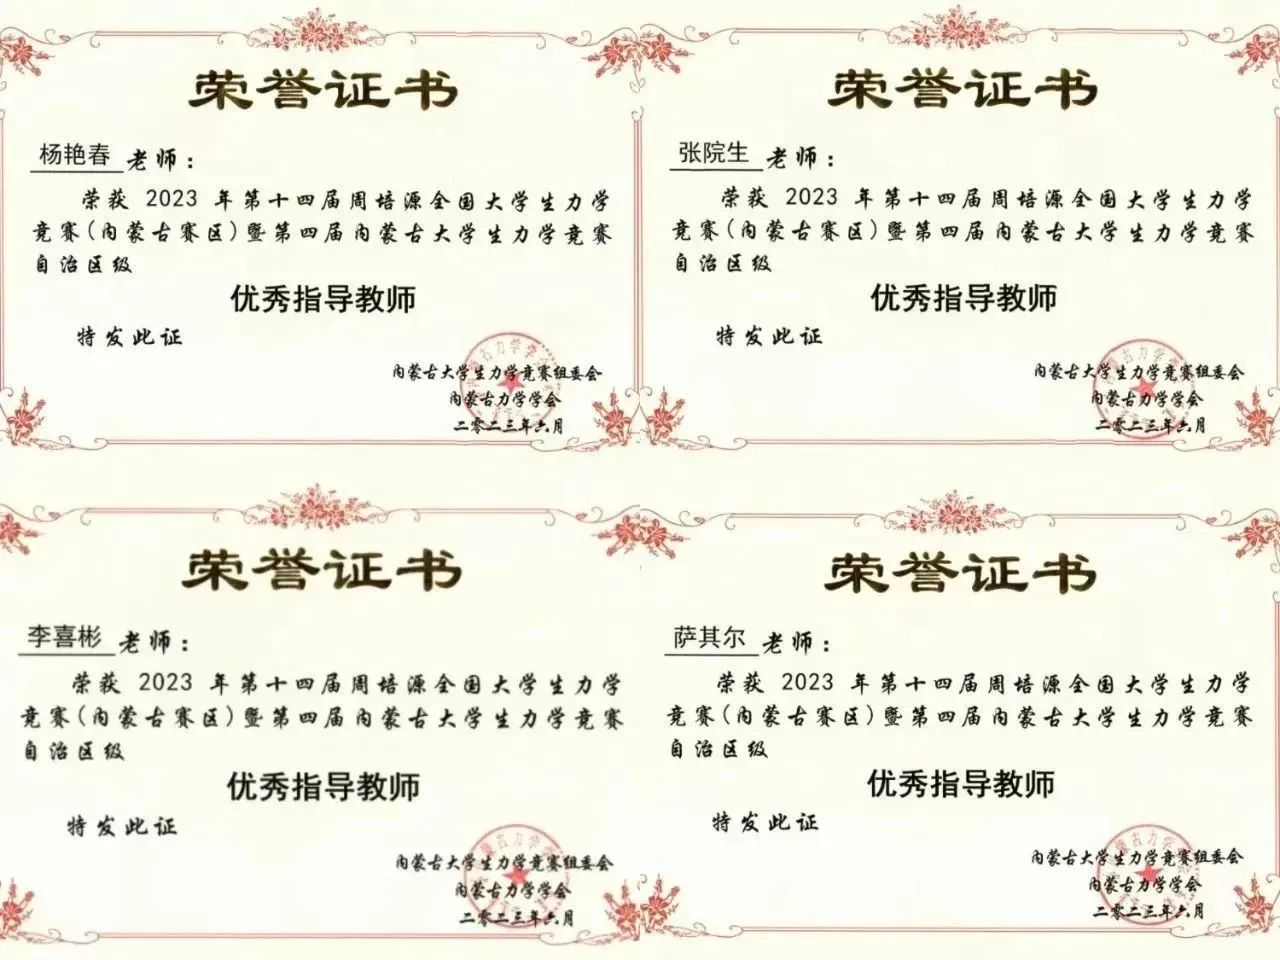 荣誉证书
杨艳春 老师：
荣获 2023 年第十四届周培源全国大学生力学
竞赛(内蒙古赛区)暨第四届内蒙古大学生力学竞赛
自治区级
优秀指导教师
特发此证
内蒙古大学生力学竞赛组委会
内蒙古力学学会
二零二三年六月
荣誉证书
张院生 老师：
荣获 2023 年第十四届周培源全国大学生力学
竞赛(内蒙古赛区)暨第四届内蒙古大学生力学竞赛
自治区级
优秀指导教师
特发此证
内蒙古大学生力学竞赛组委会
内蒙古力学学会
二零二三年六月
荣誉证书
李喜彬 老师：
荣获 2023 年第十四届周培源全国大学生力学
竞赛(内蒙古赛区)暨第四届内蒙古大学生力学竞赛
自治区级
优秀指导教师
特发此证
内蒙古大学生力学竞赛组委会
内蒙古力学学会
二零二三年六月
荣誉证书
萨其尔 老师：
荣获 2023 年第十四届周培源全国大学生力学
竞赛(内蒙古赛区)暨第四届内蒙古大学生力学竞赛
自治区级
优秀指导教师
特发此证
内蒙古大学生力学竞赛组委会
内蒙古力学学会
二零二三年六月